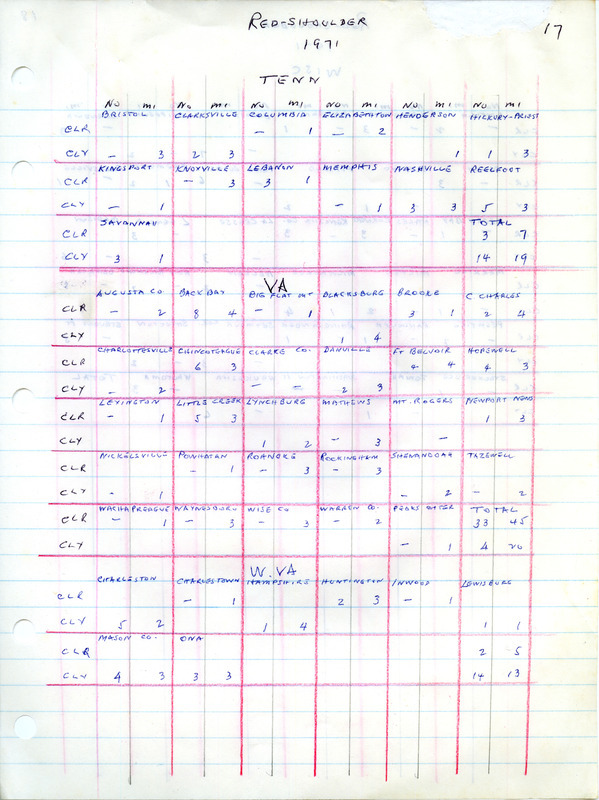 RED-SHOULDER 17
1971
TENN
No MI No MI No MI No MI No MI No MI
BRISTOL CLARKSVILLE COLUMBIA ELIZABETHTON HENDERSON HICKORY-PRIEST
CLR – 1 – 2
CLY – 3 2 3 1 1 3
KINGSPORT KNOXVILLE LEBANON MEMPHIS NASHVILLE REELFOOT
CLR – 3 3 1
CLY – 1 – 1 3 3 5 3
SAVANNAH TOTAL
CLR 3 7
CLY 3 1 14 19
VA
AUGUSTA CO BACK BAY BIG FLAT MT BLACKSBURG BROOKE C CHARLES
CLR – 2 8 4 – 1 3 1 2 4
CLY 1 4
CHARLOTTESVILLE CHINCOTEAGUE CLARKE CO. DANVILLE FT BELVOIR HOPEWELL
CLR 6 3 4 4 4 3
CLY – 2 – – 2 3
LEXINGTON LITTLE CREEK LYNCHBURG MATHEWS MT. ROGERS NEWPORT NEWS
CLR – 1 5 3 1 3
CLY 1 2 – 3 –
NICKELSVILLE POWHATAN ROANOKE ROCKINGHAM SHENANDOAH TAZEWELL
CLR – 1 – 3 – 3
CLY – 1 – 2 – 2
WACHAPREAGUE WAYNESBORO WISE CO WARREN CO. PEAKS OTTER TOTAL
CLR – 1 – 3 – 3 – 2 33 45
CLY – 1 4 20
W. VA
CHARLESTON CHARLESTOWN HAMPSHIRE HUNTINGTON INWOOD LEWISBURG
CLR – 1 2 3 – 1
CLY 5 2 1 4 1 1
MASON CO. ONA
CLR 2 5
CLY 4 3 3 3 14 13